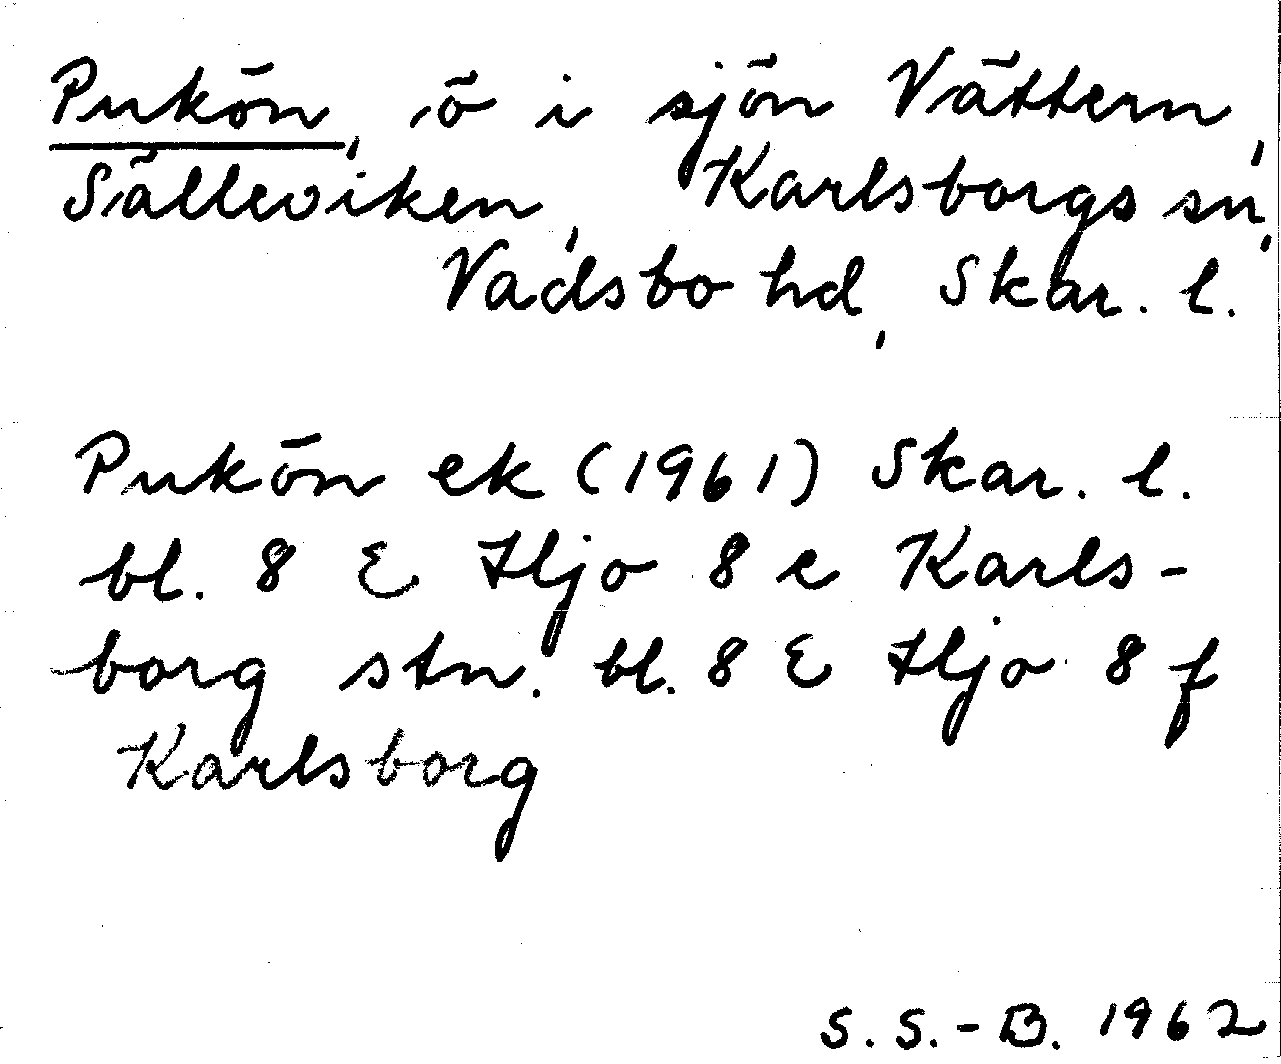 Pukön, ö i sjön Vättern,
Sälleviken, Karlsborgs sn,
Vadsbo hd, Skar. l.
Pukön ek (1961) Skar. l.
bl. 8 E Hjo 8 e Karls-
borg stn. bl. 8 E Hjo 8 f
Karlsborg
S. S.-B. 1962